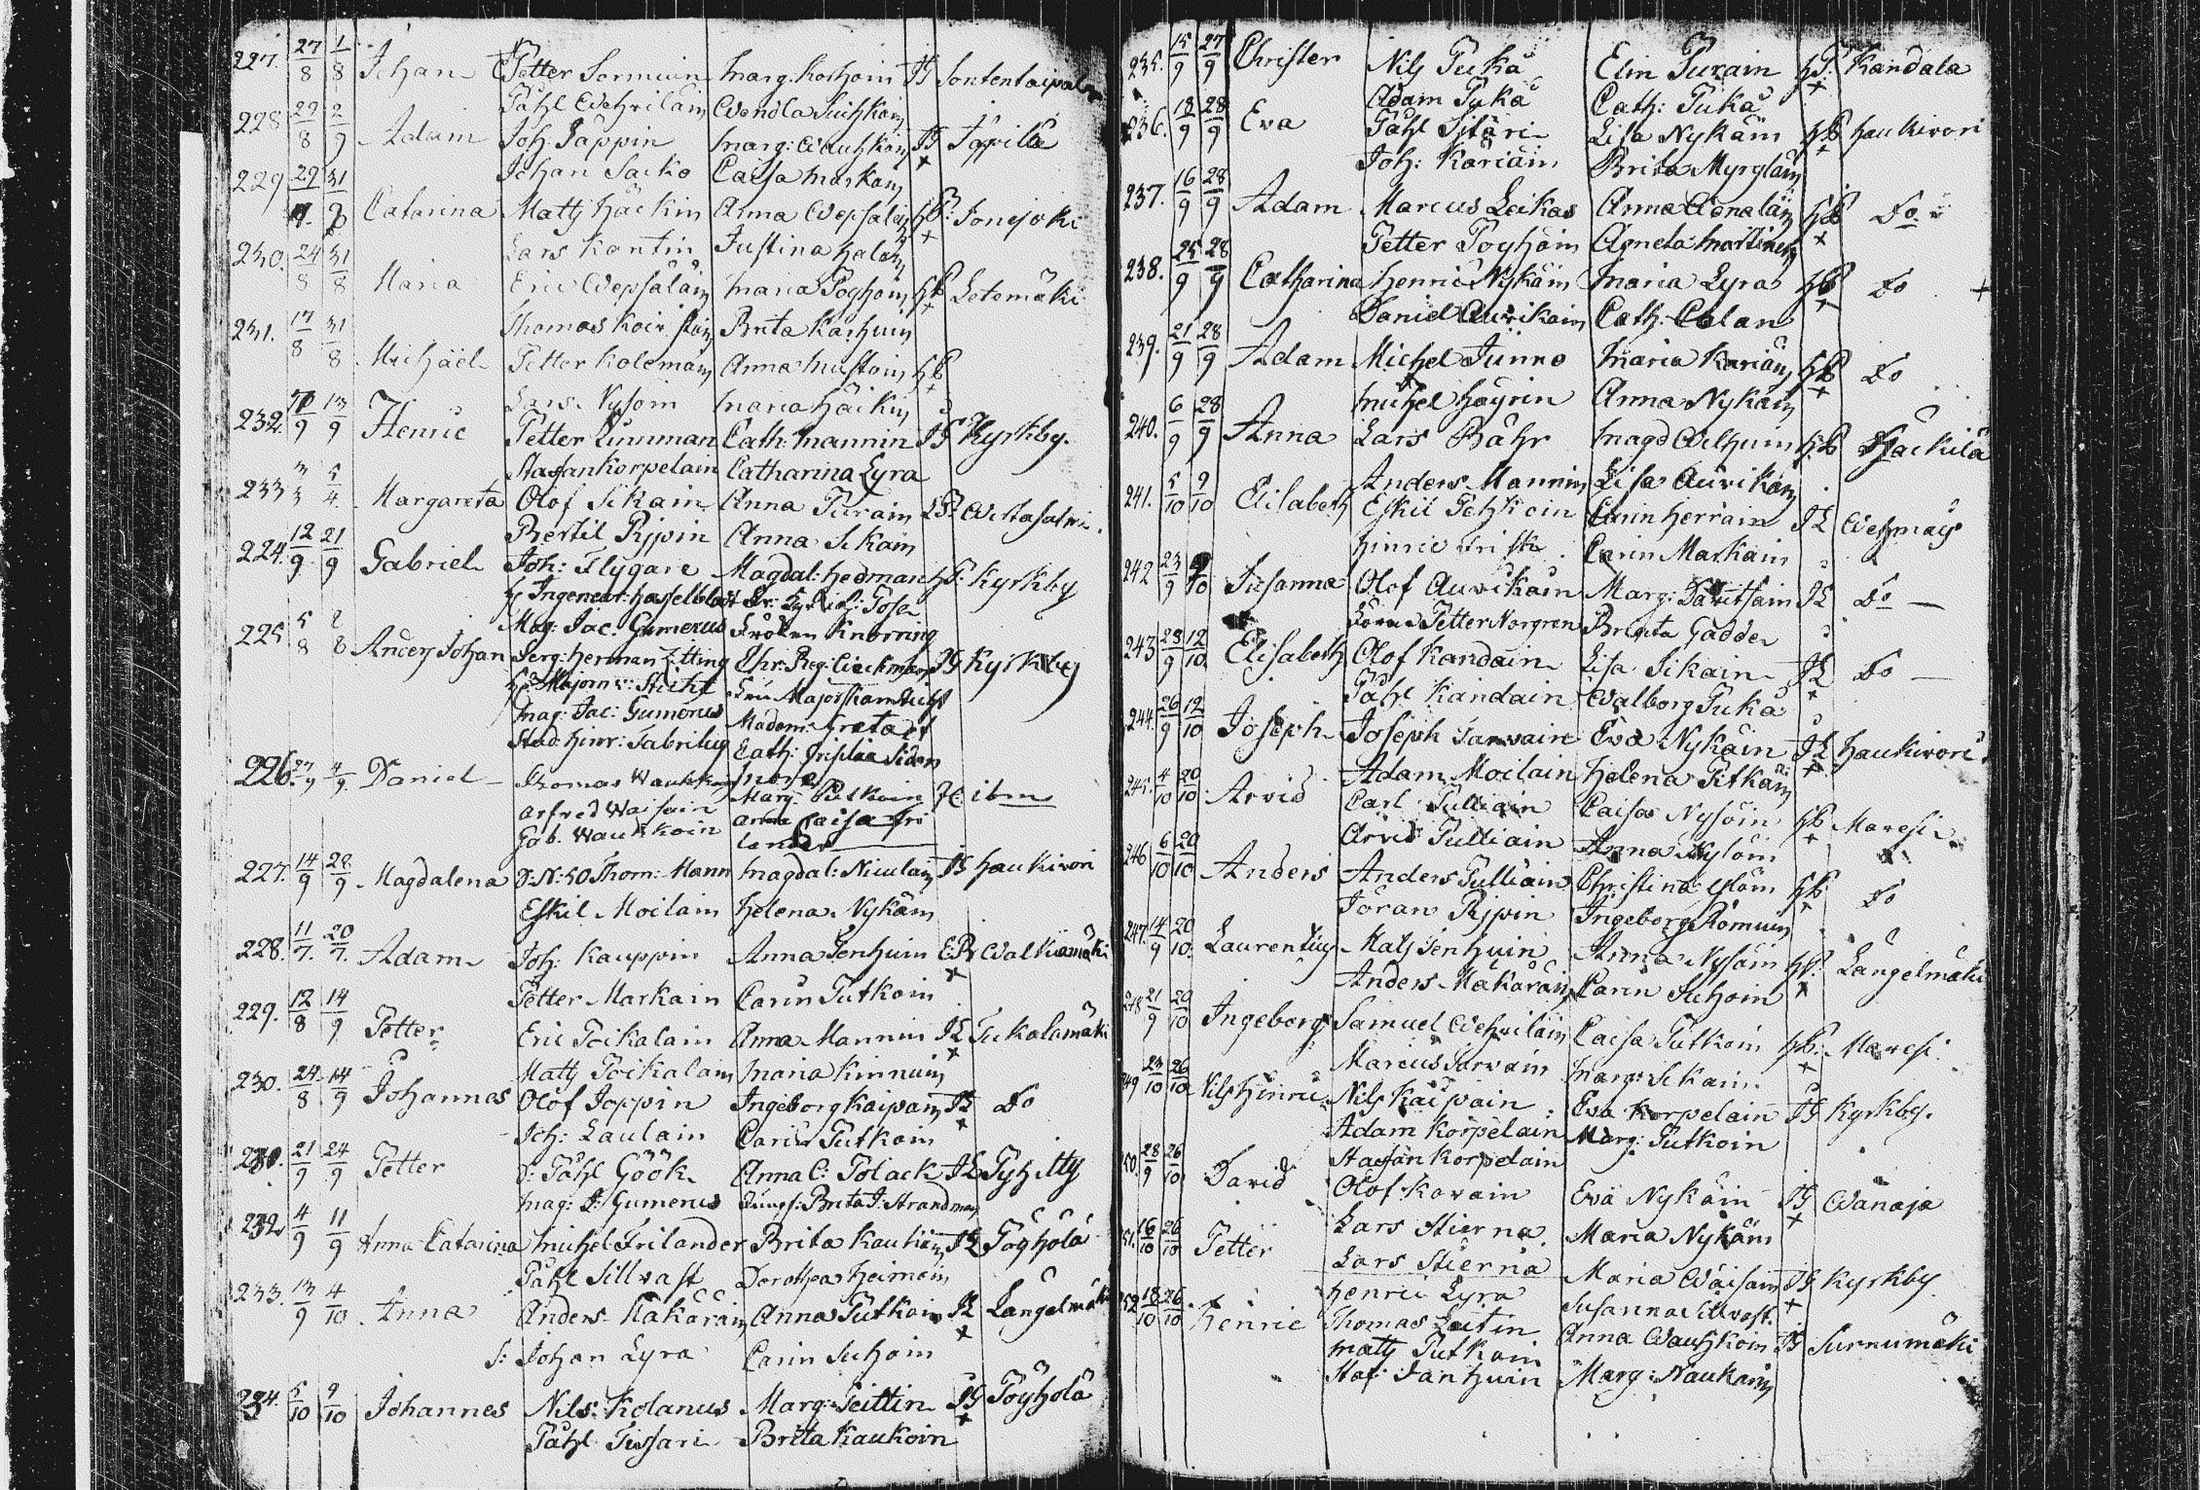 227. 27/8 1/8 Johan Petter Sormuin Marg. Korhoin JG Sontentaipale
Påhl Wehviläin Wendla Suihkoin
228 27/8 2/9 Adam Joh. Jäppin Marg: Wauhkoin JG Jäppilä
Johan Sacko Caisa Markain
229 29 31 Catarina Matts Häckin Anna Wepsäläin HP: Jonsjoki
Lars Kontin Justina Halain
230. 24/8 31/8 Maria Eric Wepsäläin Maria Poghoin HP Letomäki
Thomas Koivistoin Brita Karhuin
231. 17/8 31/8 Michäel Petter Kolemain Anna Mustoin HP
Lars Nysoin Maria Häckin
232. 13/9 Henric Petter Linnman Cath: Mannin JG Kyrkby.
Stafan Korpelain Catharina Lyra
233 5/4 Margareta Olof Sikain Anna Purain LP: Witasalmi.
Bertil Ripin Anna Sikain
224. 12/9 21/9 Gabriel Joh: Flygare Magdal: Hedman HP: Kyrkby
Hr Ingeneur: Hasselblatt
Mag: Jac: Gumerus Fröken Knorring
225. 5/8 8 Anders Johan Serg: Herman Zitting Chr: Reg: Ciäckman JG Kyrkby
Hr Majorn v: Sticht Fru Majorskan Sticht
Mag: Jac: Gumerus Madem: Greta
Stud: Hinr: Fabritius Cath: Sidon
226. 27/9 4/9 Daniel Thomas Wauhkoin Marg: Putkoin JG ibm
Arfved Waisain Anna Caisa Fri
Gab. Wauhkoin lander
227. 14/9 28/9 Magdalena S: N: 50 Thom: Mann Magdal: Niculain JG Haukivori
Eskil Moilain Helena Nykäin
228. 11/7. 20/7. Adam Joh: Kauppin Anna Tenhuin EP Walkiamäki
Petter Markain Carin Putkoin
229. 12/8 14/9 Petter Eric Poikalain Anna Mannin JL Pukalamäki
Matts Poikalain Maria Kinnuin
230. 24/8 14/9 Johannes Olof Joppin Ingeborg Kaipain JL Do
Joh: Laulain Carin Putkoin
21/9 24/9 Petter S: Påhl Göök Anna C: Polack JL Pyhitty
Mag: J: Gumerus Jungf: Brita J: Strandman
232 4/9 11/9 Anna Catarina Michel Frilander Brita Kaukoin JL Pöghölä
Påhl Sillvast Dorothea Heimoin
233. 13/9 4/10 Anna Anders Kakarain Anna Putkoin JL Längelmäki
S: Johan Lyra Carin Suhoin
234. 5/10 9/10 Johannes Nils Kolanus Marg: Teittin JG Pöyhölä
Påhl Tissari Brita Kaukoin
235. 15/9 27/9 Christer Nils Pukä Elin Purain HP: Kandala
Adam Pukä Cath: Pukä
236. 18/9 28/9 Eva Påhl Sitäri Lisa Nykäin HP Haukivori
Joh: Kariäin Brita Myrgläin
237. 16/9 28/9 Adam Marcus Leikas Anna Wenaläin HP Do
Petter Poyhöin Agneta Martikain
238. 25/9 28/9 Catharina Henric Nykäin Maria Lyra HP Do +
Daniel Auvikain Cath: Calan
239. 21/9 28/9 Adam Michel Junno Maria Kariäin HP Do
Michel Häyrin Anna Nykäin
240. 6/9 28/9 Anna Lars Bähr Magd Welhuin HP Häckilä
Anders Mannin Lisa Auvikain
241. 5/10 9/10 Elisabeth Eskil Pehkoin Carin Herrain JL Wehmais
Hinric Frisk Carin Markain
242 23/9 10 Susanna Olof Auvikain Marg: Davitsain JL Do
Petter Norgren Brigita Gadde
243 23/9 12/10 Elisabeth Olof Kandain Lisa Sikain JL Do
Påhl Kandain Walborg Pukä
244. 26/9 12/10 Joseph Joseph Tarvain Eva Nykäin JL Haukivori.
Adam Moilain Helena Pitkäin
245. 4/10 20/10 Arvid Carl Pulliain Caisa Nysöin HP Maresi
Arvid Pulliain Anna Nysöin
246 6/10 20/10 Anders Anders Pulliain Christina HP Do
Joran Ripin Ingeborg Romuin
247. 14/9 20/10. Laurentius Mats Tenhuin Anna Nysöin HP. Längelmäki
Anders Makärain Carin Suhoin
248 21/9 20/10 Ingeborg Samuel Wehviläin Caisa Putkoin HP: Maresi
Marcus Tarvain Marg: Sikain
249 23/10 26/10 Nils Hinric Nils Kaipain Eva Korpelain JG Kyrkby.
Adam Korpelain Marg: Putkoin
Stafan Korpelain
50. 28/9 26/10 David Olof Kovain Eva Nykäin JG Wänaja
Lars Stierna Maria Nykäin
51. 16/10 26/10 Petter Lars Stierna Maria Wäisain JG Kyrkby
Henric Lyra Susanna Sillvast
52 18/10 26/10 Henric Thomas Leitin Anna Wauhkoin JG Surnumäki
Matts Putkoin Marg: Naukarin
Staf: Janhuin